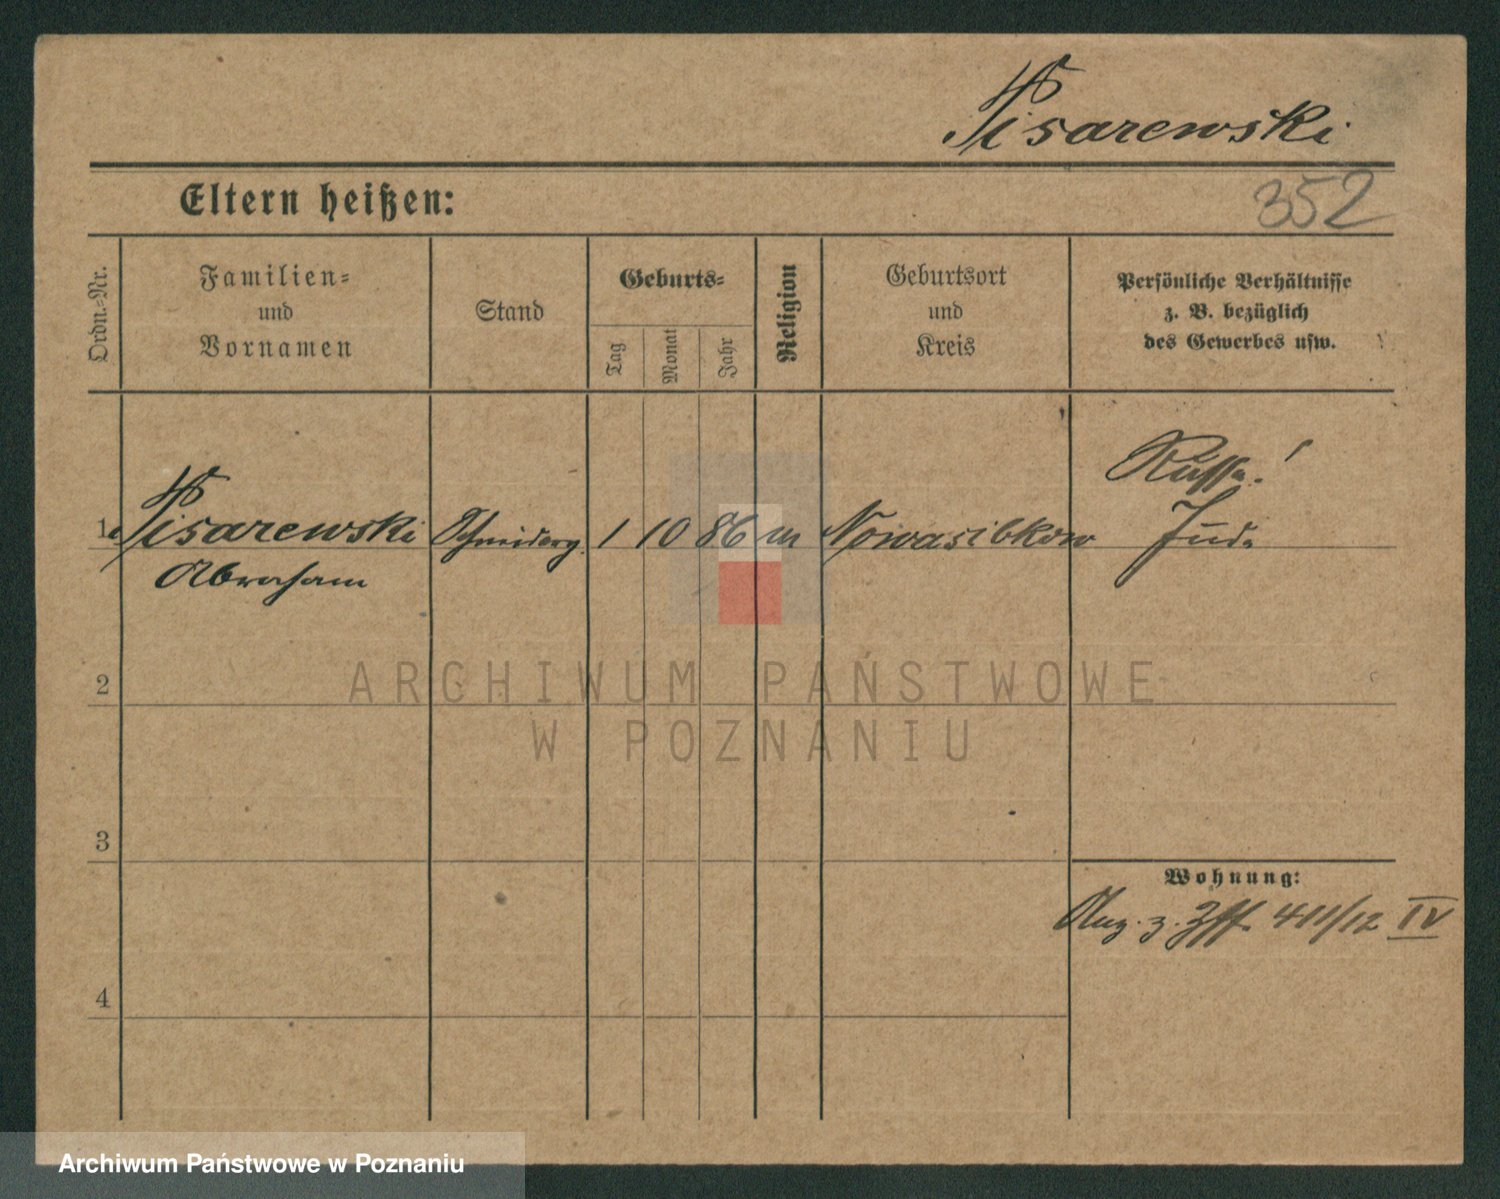 Pisarewski
352
Eltern heißen:
Ordn.-Nr.
Familien-
und
Vornamen
Stand
Geburts-
Tag
Monat
Jahr
Religion
Geburtsort
und
Kreis
Persönliche Verhältnisse
z. B. bezüglich
des Gewerbes usw.
Russe!
1 Pisarewski Schneiderg. 1 10 86 m Nowasibkow Jude
Abraham
ARCHIWUM PAŃSTWOWE
2
W POZNANIU
3
Wohnung:
z. 411/12 IV
4
Archiwum Państwowe w Poznaniu